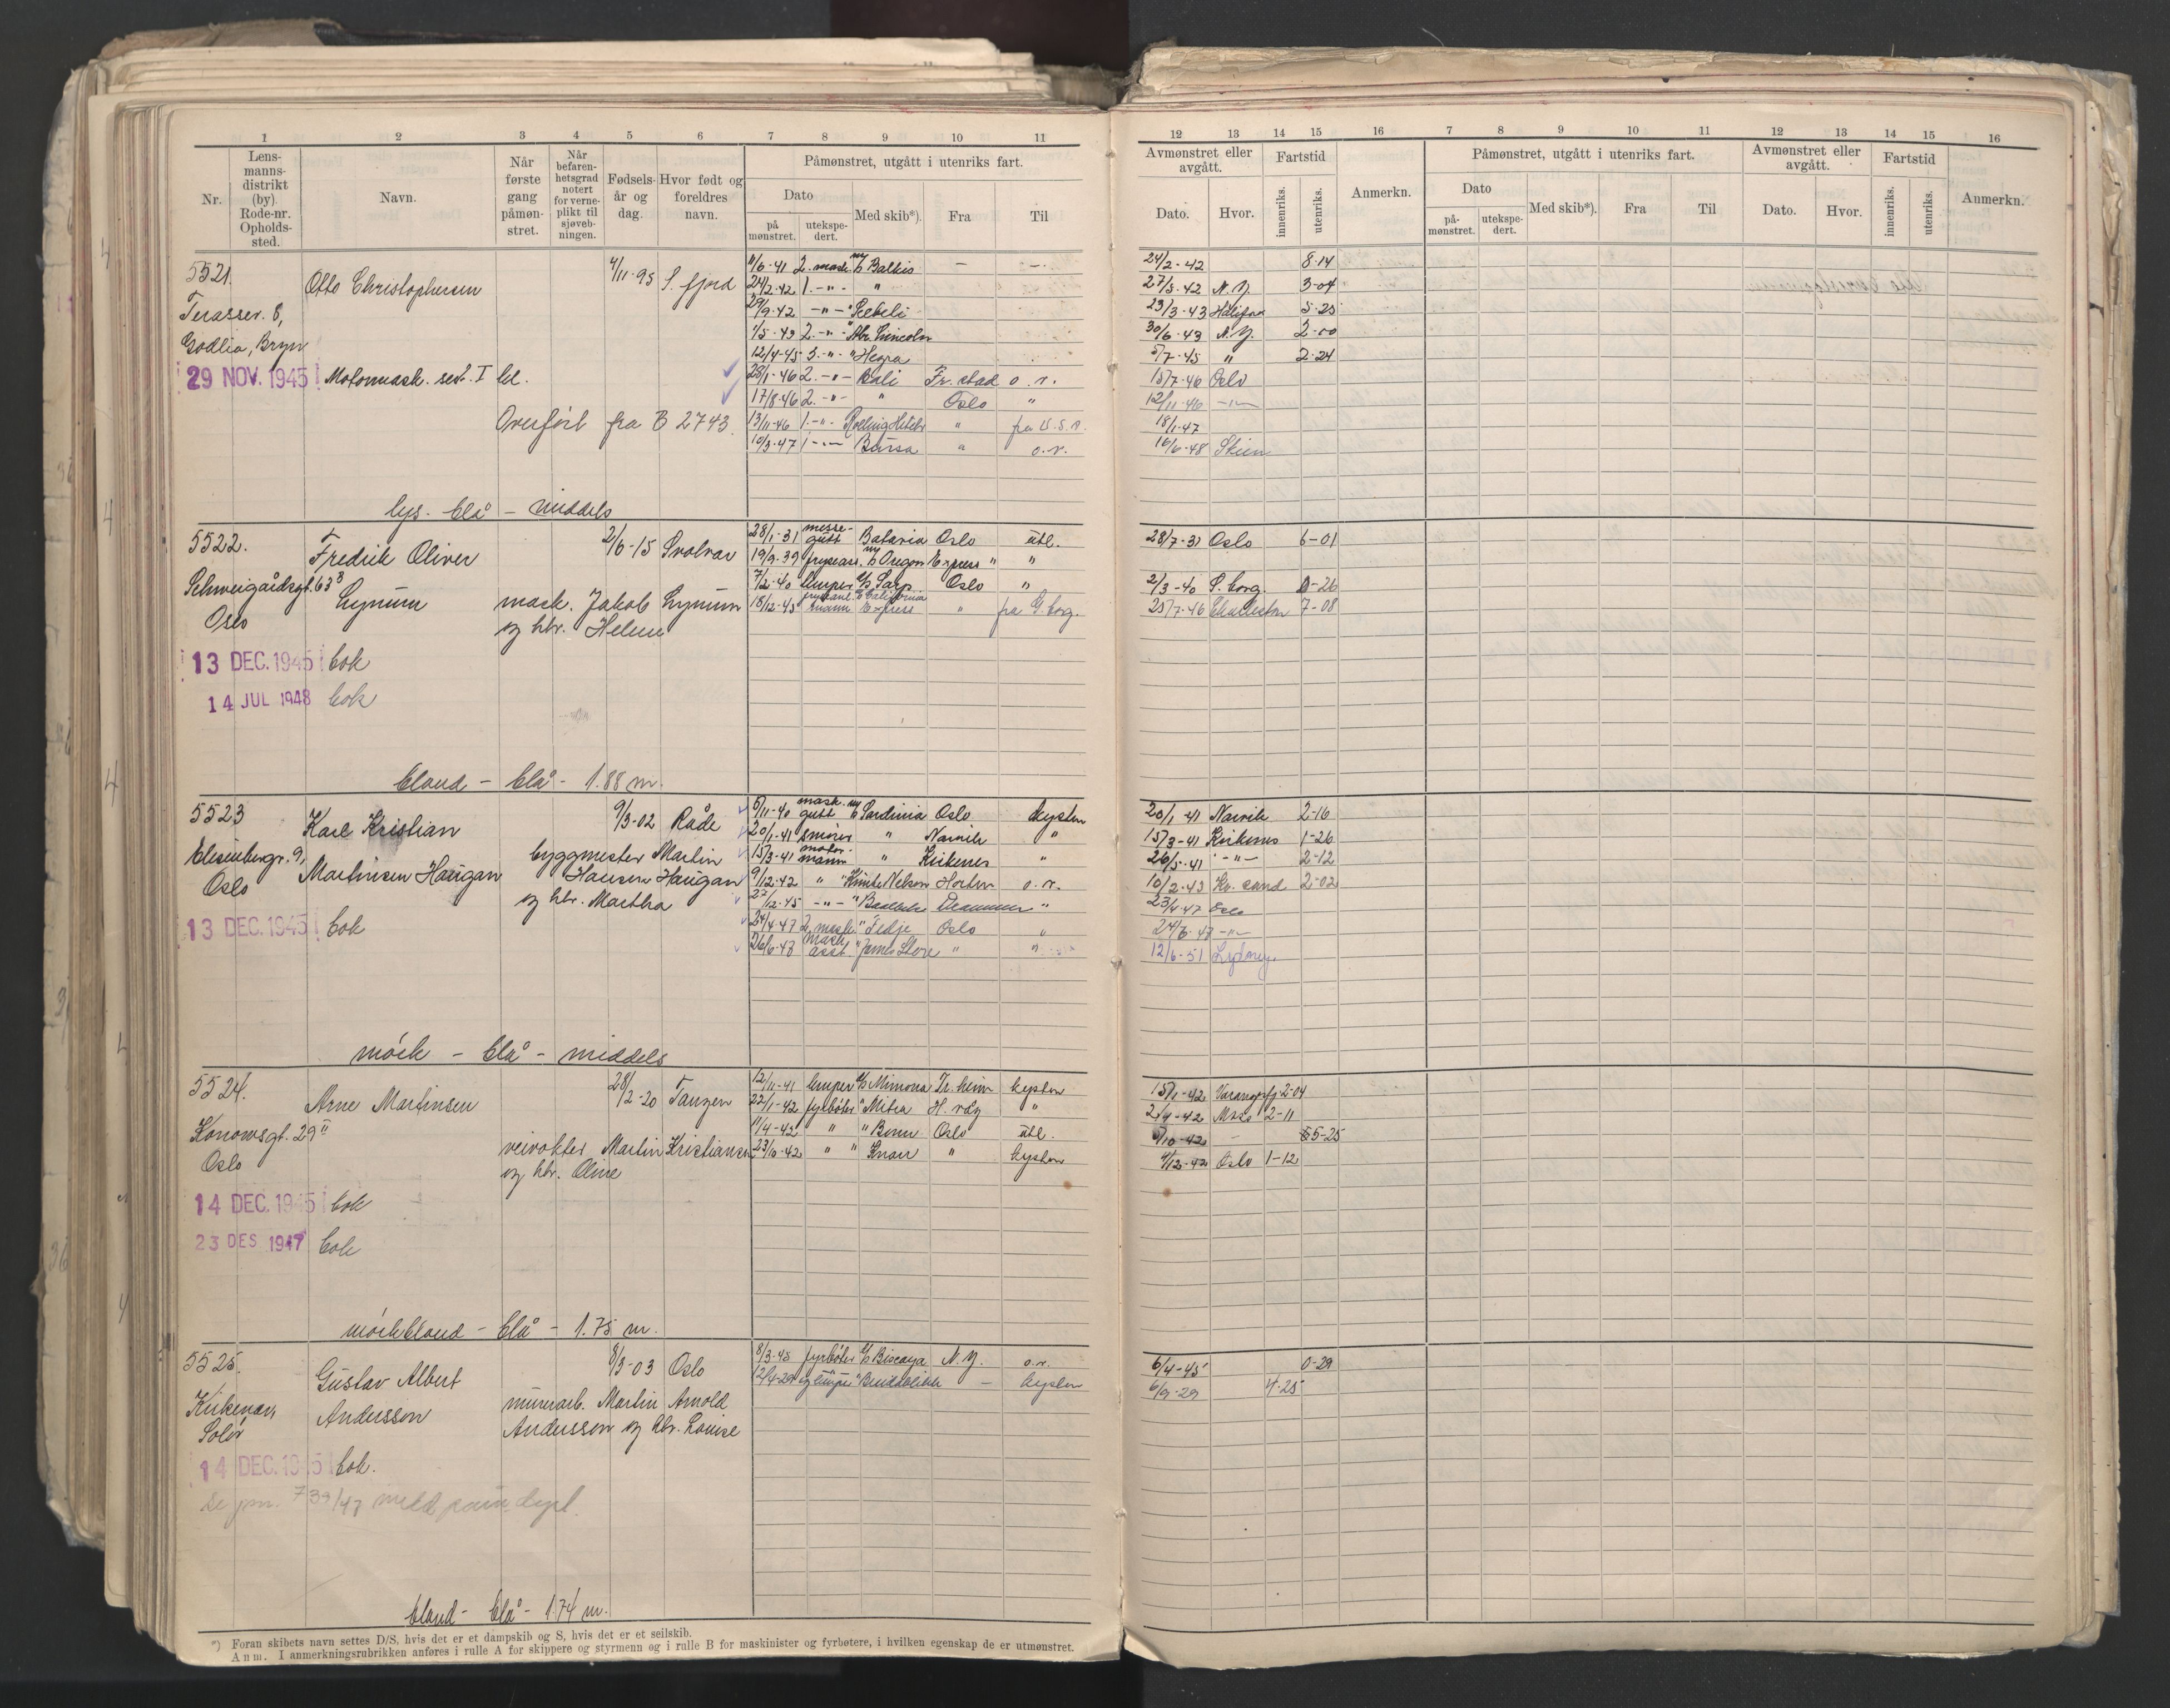 1 2 3 4 5 6 7 8 9 10 11
Nr.
Lens-
manns-
distrikt
(by)
Rode-nr.
Opholds-
sted.
Navn.
Når
første
gang
påmøn-
stret.
Når
befaren-
hetsgrad
notert
for verne-
plikt til
sjøveb-
ningen.
Fødsels-
år og
dag.
Hvor født og
foreldres
navn.
Påmønstret, utgått i utenriks fart.
Dato
på
mønstret.
utekspe-
dert.
Med skib*).
Fra
Til
5521.
Otto Christophersen
4/11-95 S. fjord
Terassev. 8,
Godlia, Bryn
29 NOV. 1945 Motormask. sert. I kl.
Overført fra B 2743.
lys - blå - middels
11/6-41 2. mask. Balkis — —
24/2-42 1. -"- "
29/9-42 -"- " Rebeli
1/5-43 2. -"- " Abr. Lincoln
12/4-45 3. -"- " Hegra
28/1-46 2. -"- Bali Fr. stad o. r.
17/8-46 2. -"- " Oslo "
13/11-46 1. -"- " fra U.S.A.
10/3-47 1 -"- Bårsa " o. r.
5522.
Fredrik Oliver
Lynum
2/6-15 Svolvær
Schweigårdsgt. 63 B
Oslo
mask. Jakob Lynum
og htr. Helene
13 DEC. 1945 bok
14 JUL 1948 bok
blond - blå - 1.88 m.
28/1-31 messe-
gutt Batavia Oslo utl.
19/9-39 fryseass. Oregon Express " "
7/2-40 lemper D/S Sarp Oslo "
18/12-45 mann California
Express " fra G. borg.
5523
Karl Kristian
Martinsen Haugan
9/3-02 Råde
Elisenbergv. 9,
Oslo
byggmester Martin
Hansen Haugan
og htr. Martha
13 DEC. 1945 bok
mörk - blå - middels
5/11-40 mask.
gutt Sardinia Oslo kysten
20/1-41 smører " Narvik "
15/3-41 motor-
mann " Kirkenes "
9/12-42 " " Knute Nelson Horten o. r.
27/12-45 -"- " Drammen "
24/4-47 2. mask. " Tedje Oslo "
26/6-47 mask.
asst. " James Stove " "
5524.
Arne Martinsen
28/2-20 Tangen
Konowsgt. 29 II
Oslo
veivokter Martin Kristiansen
og htr. Oline
14 DEC. 1945 bok
23 DES 1947 bok
mörkblond - blå - 1.75 m.
12/11-41 lemper D/S Mimona Tr. heim kysten
22/1-42 fyrbøter " Mitra H. våg "
11/4-42 " " Bonn Oslo utl.
23/10-42 " " Knorr " kysten
5525.
Gustav Albert
Andersson
8/3-03 Oslo
Kirkenær,
Solør
murarb. Martin Arnold
Andersson og htr. Louise
14 DEC. 1945 bok.
blond - blå - 1.74 m.
8/3-45 fyrbøter D/S Biscaya N. Y. o. r.
12/4-29 — kysten
*) Foran skibets navn settes D/S, hvis det er et dampskib og S, hvis det er et seilskib.
Anm. I anmerkningsrubrikken anføres i rulle A for skippere og styrmenn og i rulle B for maskinister og fyrbøtere, i hvilken egenskap de er utmønstret.
12 13 14 15 16 7 8 9 10 11 12 13 14 15 16
Avmønstret eller
avgått.
Fartstid
Dato.
Hvor.
innenriks.
utenriks.
Anmerkn.
Påmønstret, utgått i utenriks fart.
Dato
på-
mønstret.
utekspe-
dert.
Med skib*).
Fra
Til
Avmønstret eller
avgått.
Fartstid
Dato.
Hvor.
innenriks.
utenriks.
Anmerkn.
24/2-42 8-14
27/5-42 N. Y. 3-04
23/3-43 Halifax 5-25
30/6-43 N. Y. 2-00
5/7-45 " 2-24
15/7-46 Oslo
12/11-46 -"-
18/1-47
16/6-48 Skien
28/7-31 Oslo 6-01
2/3-40 S. borg. 0-26
25/7-46 Charleston 7-08
20/1-41 Narvik 2-16
15/3-41 Kirkenes 1-26
26/5-41 -"- 2-12
10/2-43 Kr. sund 2-02
23/4-47 Oslo
24/6-47 -"-
12/6-51 Sydney
15/1-42 Varangerfj. 2-04
2/4-42 Moss 2-11
5/10-42 - 5-25
4/12-42 Oslo 1-12
6/4-45 0-29
6/9-29 4-25